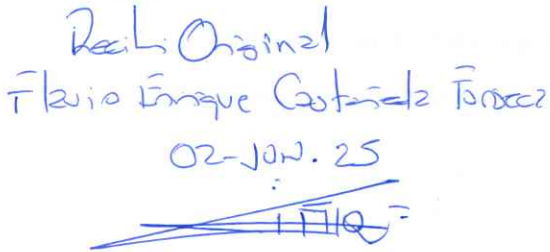 Recibi Original
Flavio Enrique Castañeda
02-JUN. 25